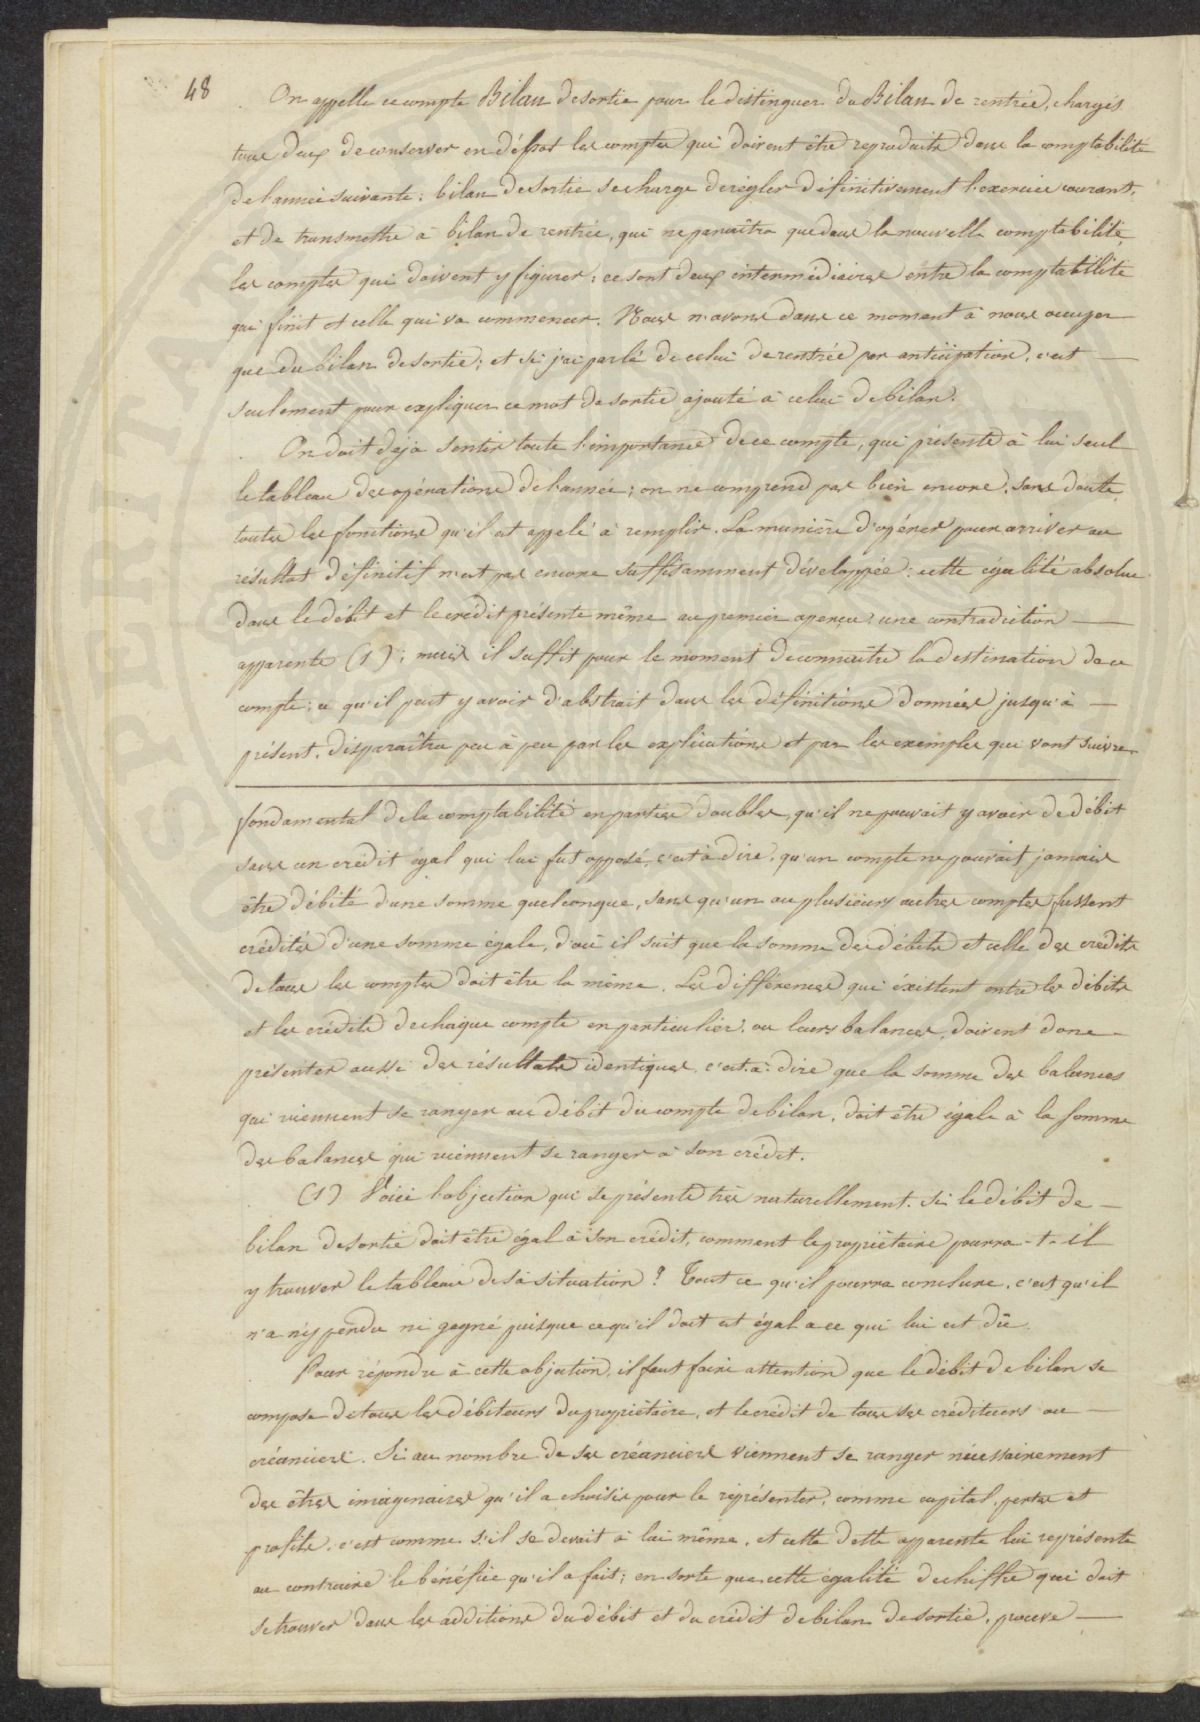 48
On appelle ce compte Bilan de sortie pour le distinguer du Bilan de rentrée, chargés
tous deux de conserver en dépot les comptes qui doivent être reproduits dans la comptabilité
de l'année suivante: bilan de sortie se charge de régler définitivement l'exercice courant,
et de transmettre à bilan de rentrée, qui ne paraîtra que dans la nouvelle comptabilité,
les comptes qui doivent y figurer; ce sont deux intermédiaires entre la comptabilité
qui finit et celle qui va commencer. Nous n'avons dans ce moment à nous occuper
que du bilan de sortie; et si j'ai parlé de celui de rentrée par anticipation, c'est —
seulement pour expliquer ce mot de sortie ajouté à celui de bilan.
On doit déja sentir toute l'importance de ce compte, qui présente à lui seul
le tableau des opérations de l'année; on ne comprend pas bien encore, sans doute,
toutes les fonctions qu'il est appelé à remplir. La manière d'opérer pour arriver au
résultat définitif n'est pas encore suffisamment développée: cette égalité absolue
dans le débit et le crédit présente même au premier aperçu, une contradiction —
apparente (1); mais il suffit pour le moment de connaître la destination de ce
compte; ce qu'il peut y avoir d'abstrait dans les définitions données jusqu'à —
présent, disparaîtra peu à peu par les explications et par les exemples qui vont suivre.
fondamental de la comptabilité en parties doubles, qu'il ne pouvait y avoir de débit
sans un crédit égal qui lui fut opposé, c'est à dire, qu'un compte ne pouvait jamais
être débité d'une somme quelconque, sans qu'un ou plusieurs autres comptes fussent
crédités d'une somme égale, d'où il suit que la somme des débits et celle des crédits
de tous les comptes doit être la même. Les différences qui éxistent entre les débits
et les crédits de chaque compte en particulier, ou leurs balances, doivent donc —
présenter aussi des résultats identiques, c'est-à-dire que la somme des balances
qui viennent se ranger au débit du compte de bilan, doit être égale à la somme
des balances qui viennent se ranger à son crédit.
(1) Voici l'objection qui se présente très naturellement. Si le débit de —
bilan de sortie doit être égal à son crédit, comment le propriétaire pourra-t-il
y trouver le tableau de sa situation? Tout ce qu'il pourra conclure, c'est qu'il
n'a ny perdu ni gagné puisque ce qu'il doit est égal a ce qui lui est dû.
Pour répondre à cette objection, il faut faire attention que le débit de bilan se
compose de tous les débiteurs du propriétaire, et le crédit de tous ses créditeurs ou —
créanciers. Si au nombre de ses créanciers viennent se ranger nécessairement
des êtres imaginaires qu'il a choisis pour le représenter, comme capital, pertes et
profits, c'est comme s'il se devait à lui même, et cette dette apparente lui représente
au contraire le bénéfice qu'il a fait; en sorte que cette égalité de chiffre qui doit
se trouver dans les additions du débit et du crédit de bilan de sortie, prouve —